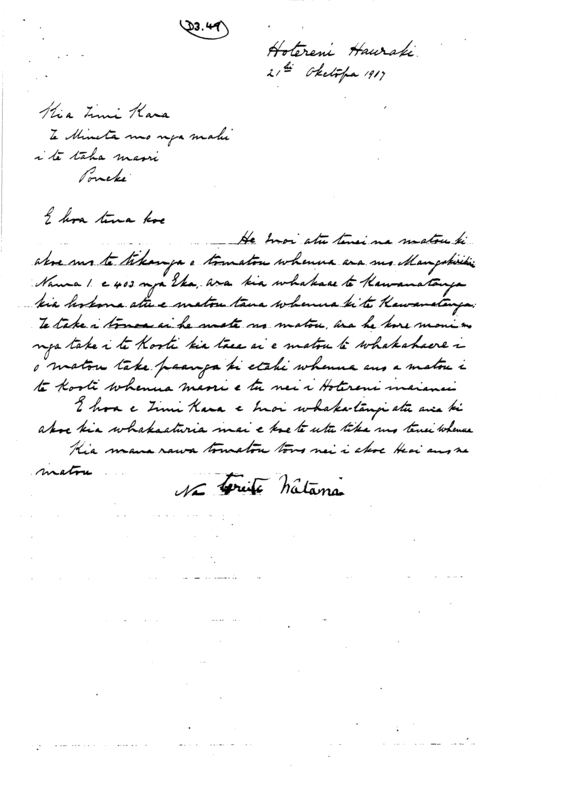 D3.49
Hotereni Hauraki
21st Oketopa 1907
Kia Timi Kara
Te Minita mo nga mahi
i te taha maori
Poneke
E hoa tena koe
He Inoi atu tenei na matou ki
akoe mo te tikanga o tomatou whenua ara mo
Nama 1. e 403 nga Eka, ara kia whakaae te Kawanatanga
kia hokona atu e matou taua whenua ki te Kawanatanga.
Te take i tonoa ai he mate no matou, ara he kore moni mo
nga take i te Kooti kia taea ai e matou te whakahaere i
o matou take paanga ki etahi whenua ano a matou i
te Kooti whenua maori e tu nei i Hotereni inaianei
E hoa e Timi Kara e Inoi whaka-tangi atu ana ki
akoe kia whakaaturia mai e koe te utu tika mo tenei whenua
Kia mana rawa tomatou tono nei i akoe Heoi ano na
matou
Na Watana